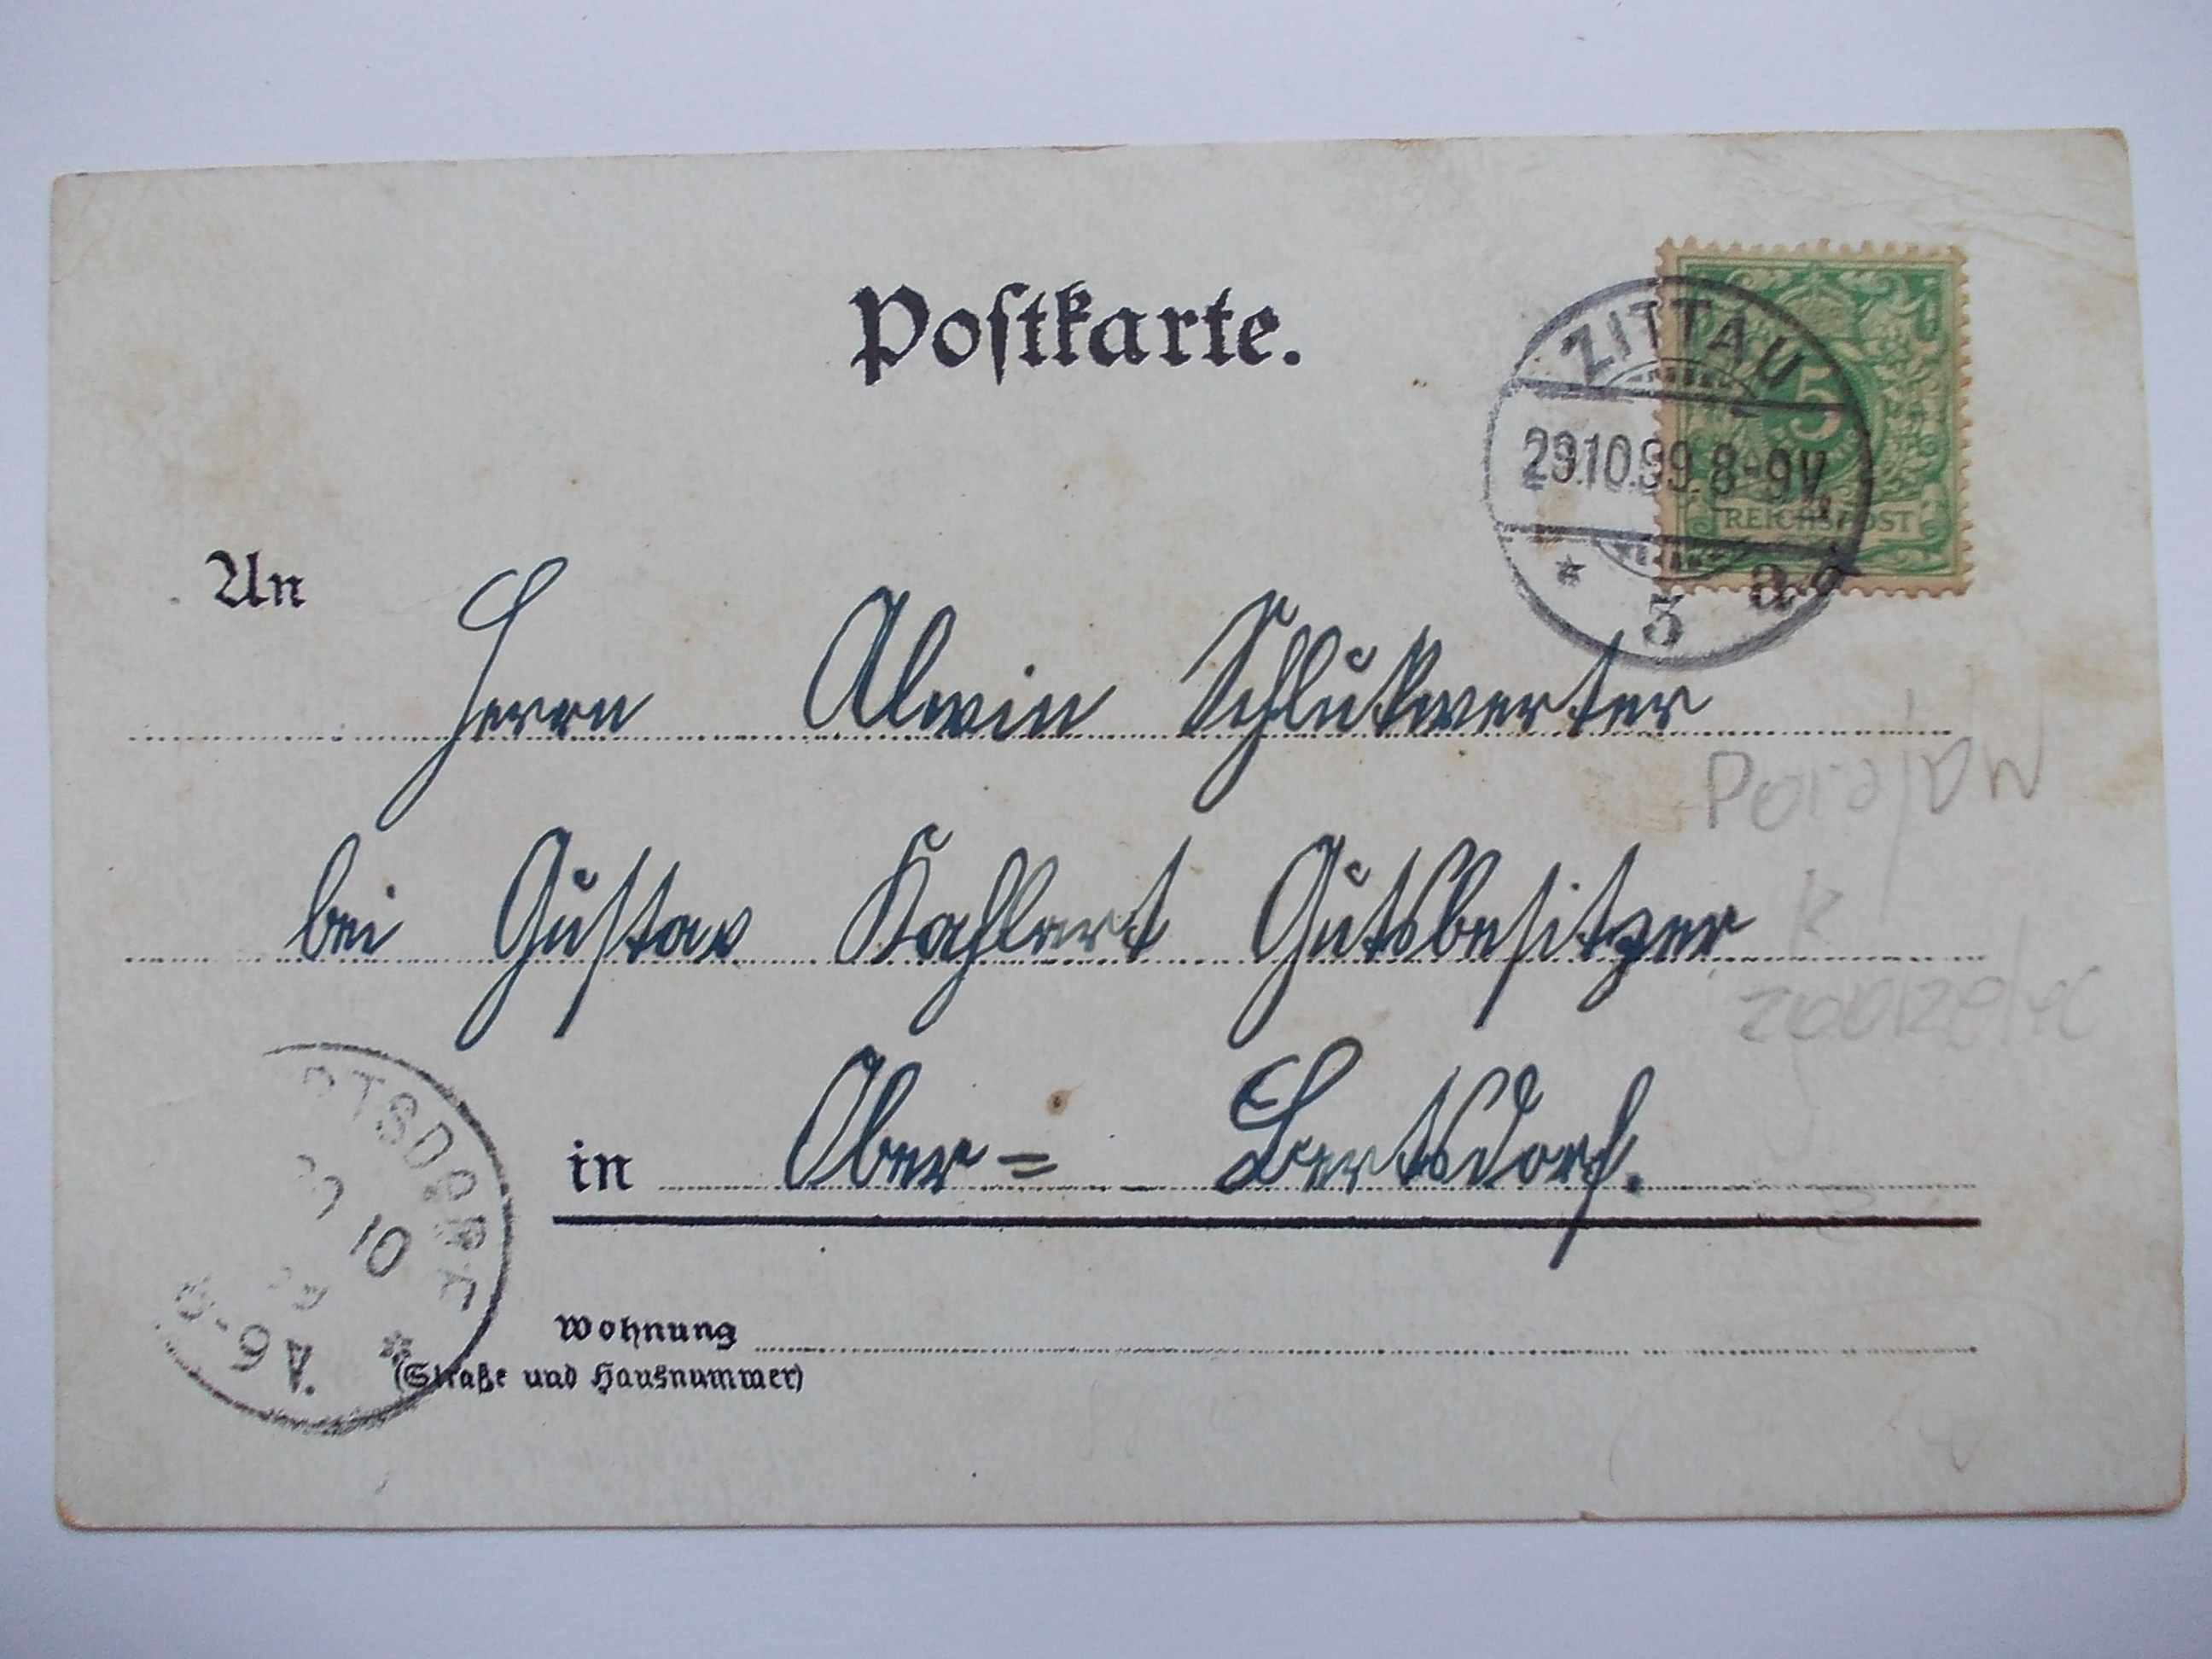 Postkarte.
ZITTAU
29.10.99. 8-9V.
* 3 a.
5
REICHSPOST
An Herrn Alwin Schlukwerter
bei Gustav Kahlert Gutsbesitzer
in Ober= Bertsdorf.
Wohnung
(Straße und Hausnummer)
RTSDORF
10
8-9V. *
Porajów
k
zgorzelec